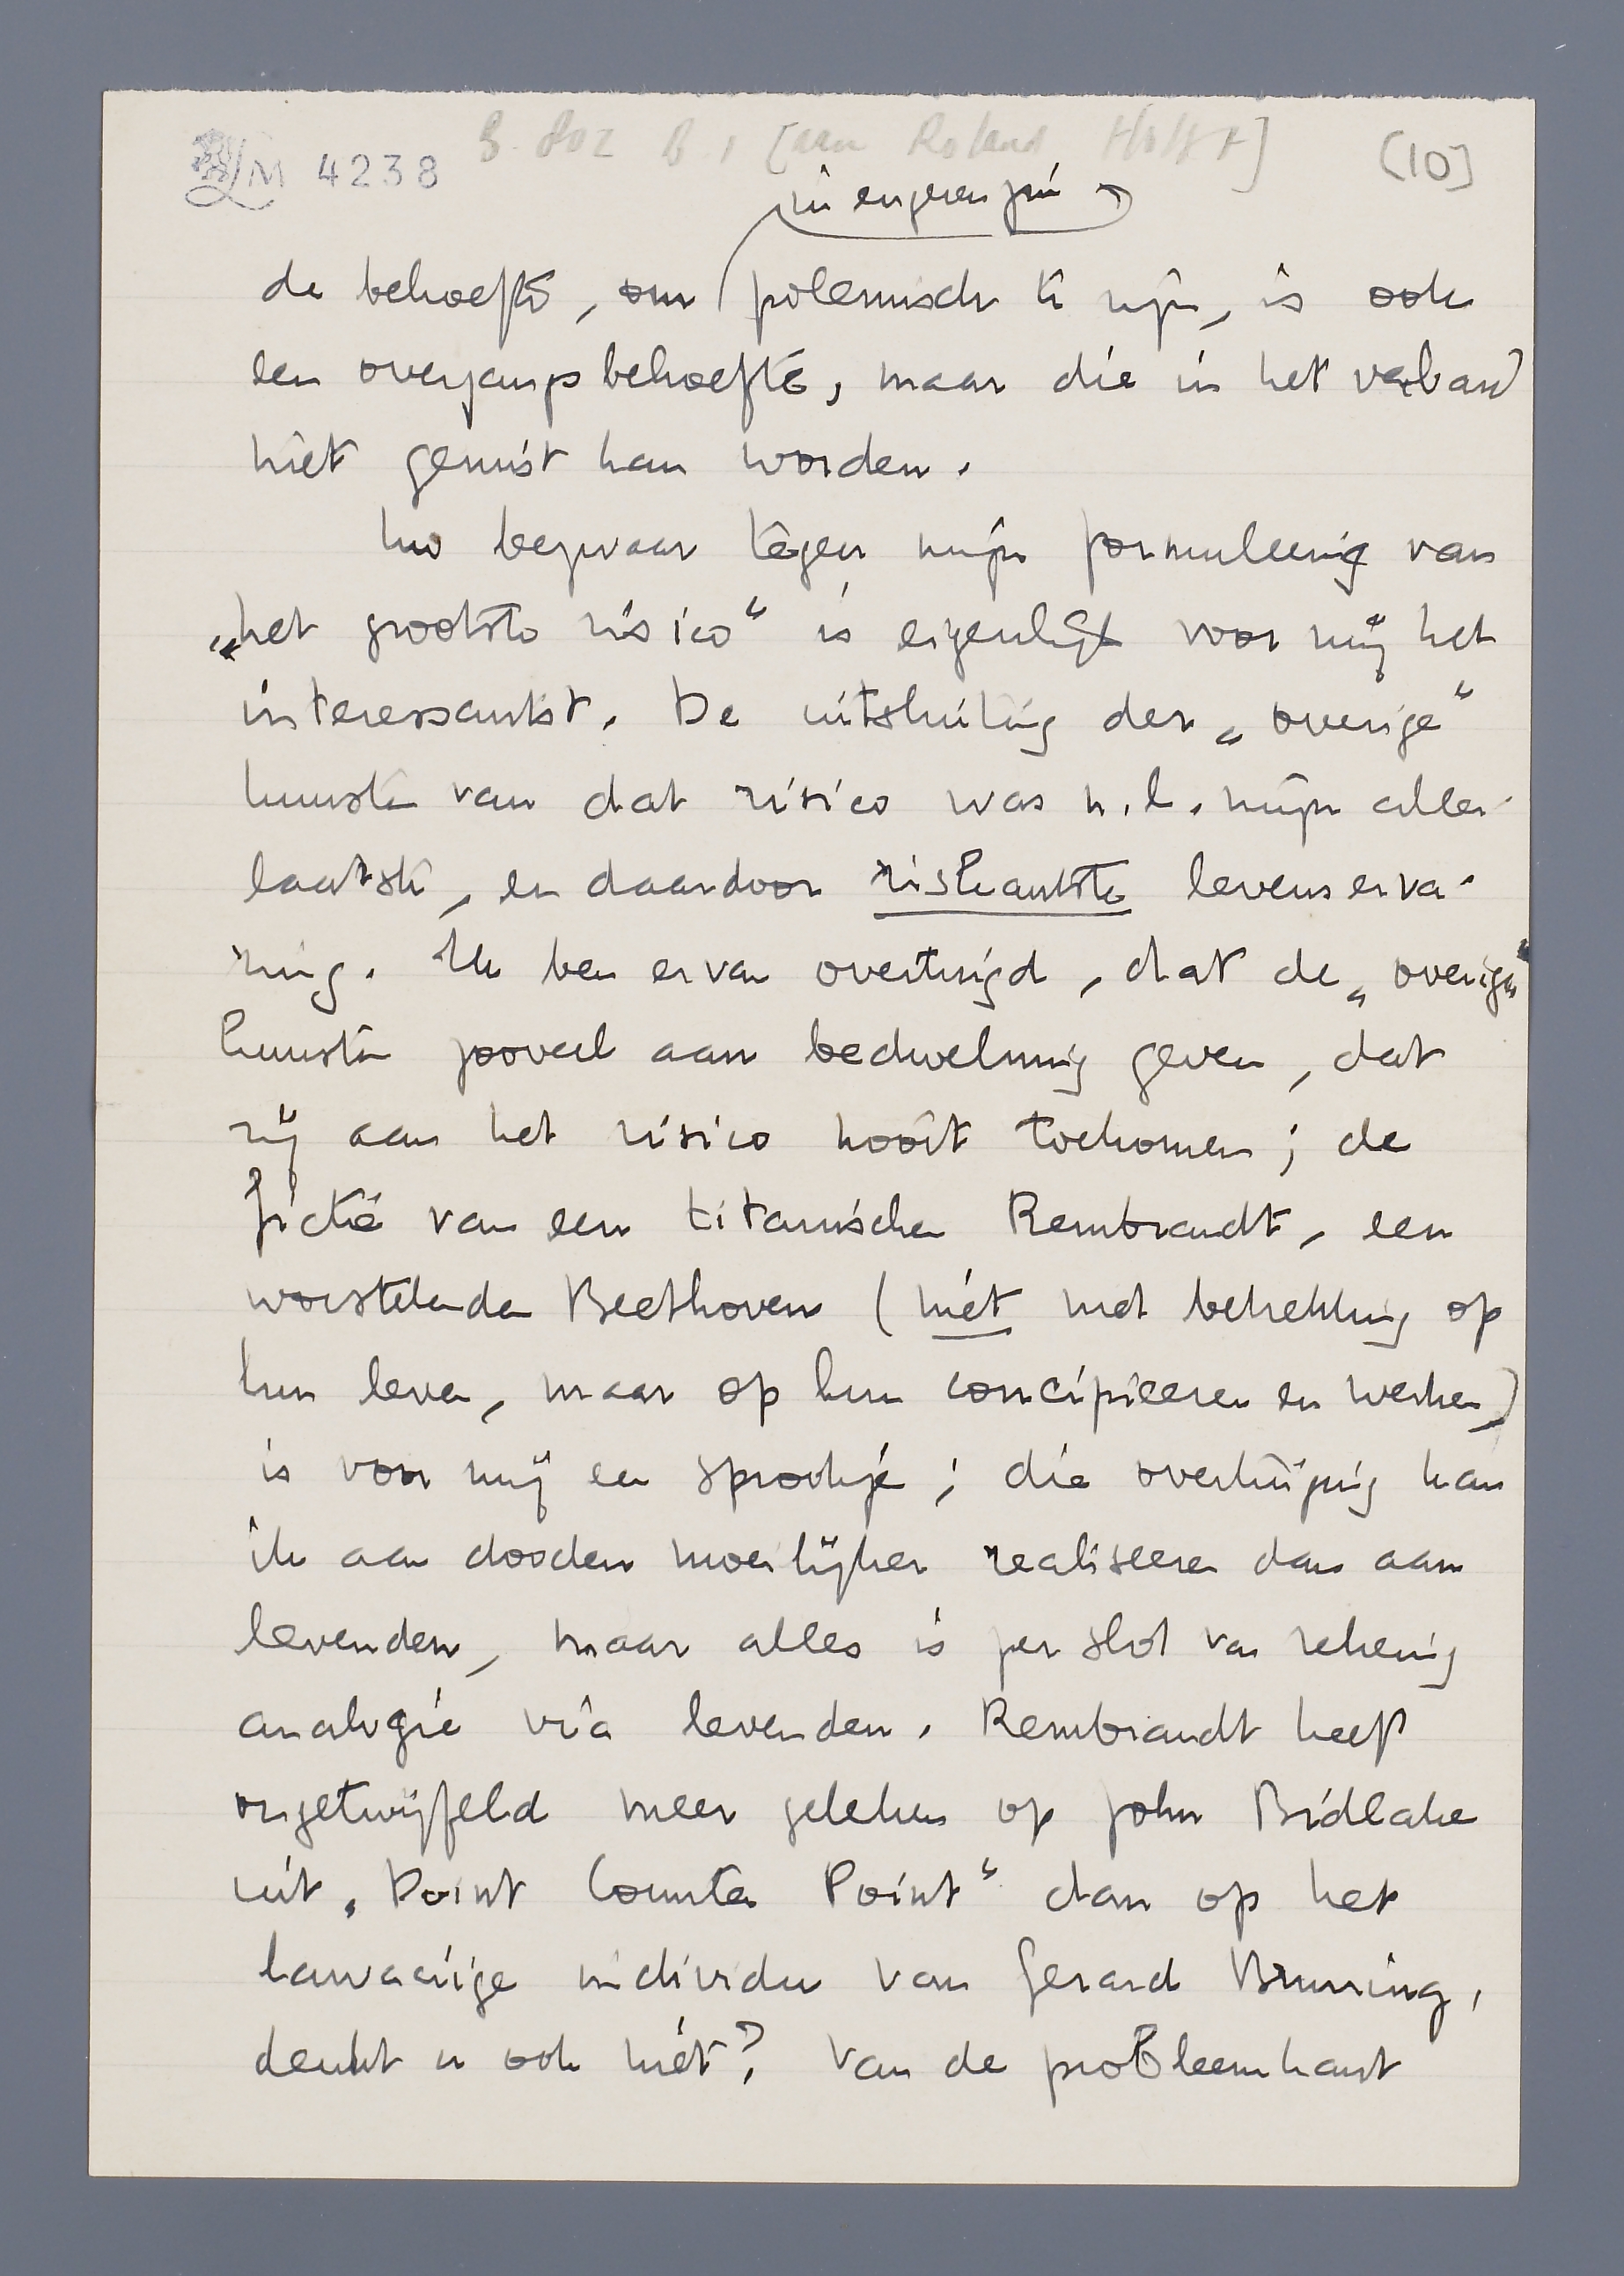 LM 4238
B. 802 B. 1 [aan Roland Holst]
[10]
in engeren zin
de behoefte, om polemisch te zijn, is ook
een overgangsbehoefte, maar die in het verband
niet gemist kan worden.
Uw bezwaar tegen mijn formuleering van
„het grootste risico“ is eigenlijk voor mij het
interessantst. De uitsluiting der „overige“
kunsten van dat risico was n.l. mijn aller-
laatste, en daardoor riskantste levenserva-
ring. Ik ben ervan overtuigd, dat de „overige“
kunsten zooveel aan bedwelming geven, dat
zij aan het risico nooit toekomen; de
fictie van een titanischen Rembrandt, een
worstelenden Beethoven (niet met betrekking op
hun leven, maar op hun concipieeren en werken)
is voor mij een sprookje; die overtuiging kan
ik aan dooden moeilijker realiseeren dan aan
levenden, maar alles is per slot van rekening
analogie via levenden. Rembrandt heeft
ongetwijfeld meer geleken op John Bidlake
uit „Point Counter Point“ dan op het
lawaaiige individu van Gerard Bruning,
denkt u ook niet? Van de probleemkant